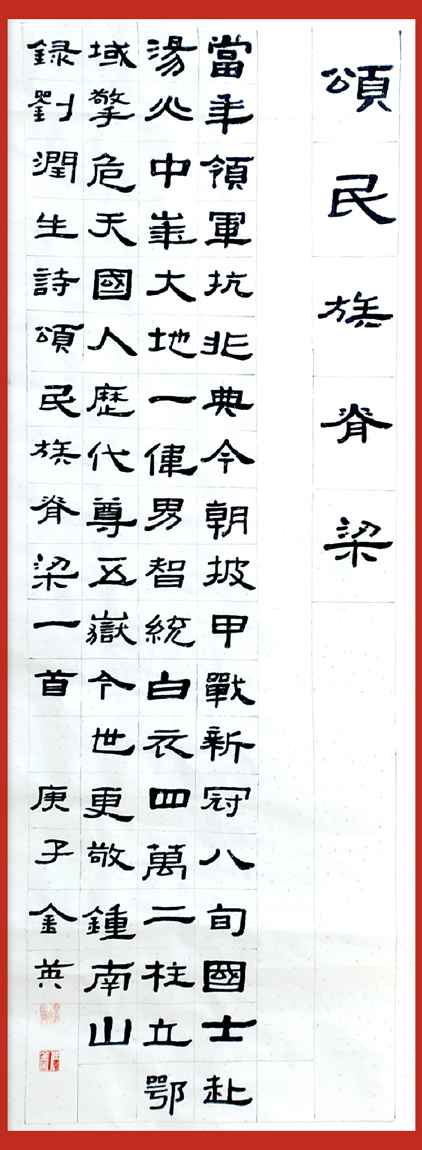 頌民族脊梁
當年領軍抗非典今朝披甲戰新冠八旬國士赴
湯火中華大地一偉男智統白衣四萬二柱立鄂
域擎危天國人歷代尊五嶽今世更敬鍾南山
録劉潤生詩頌民族脊梁一首 庚子金英